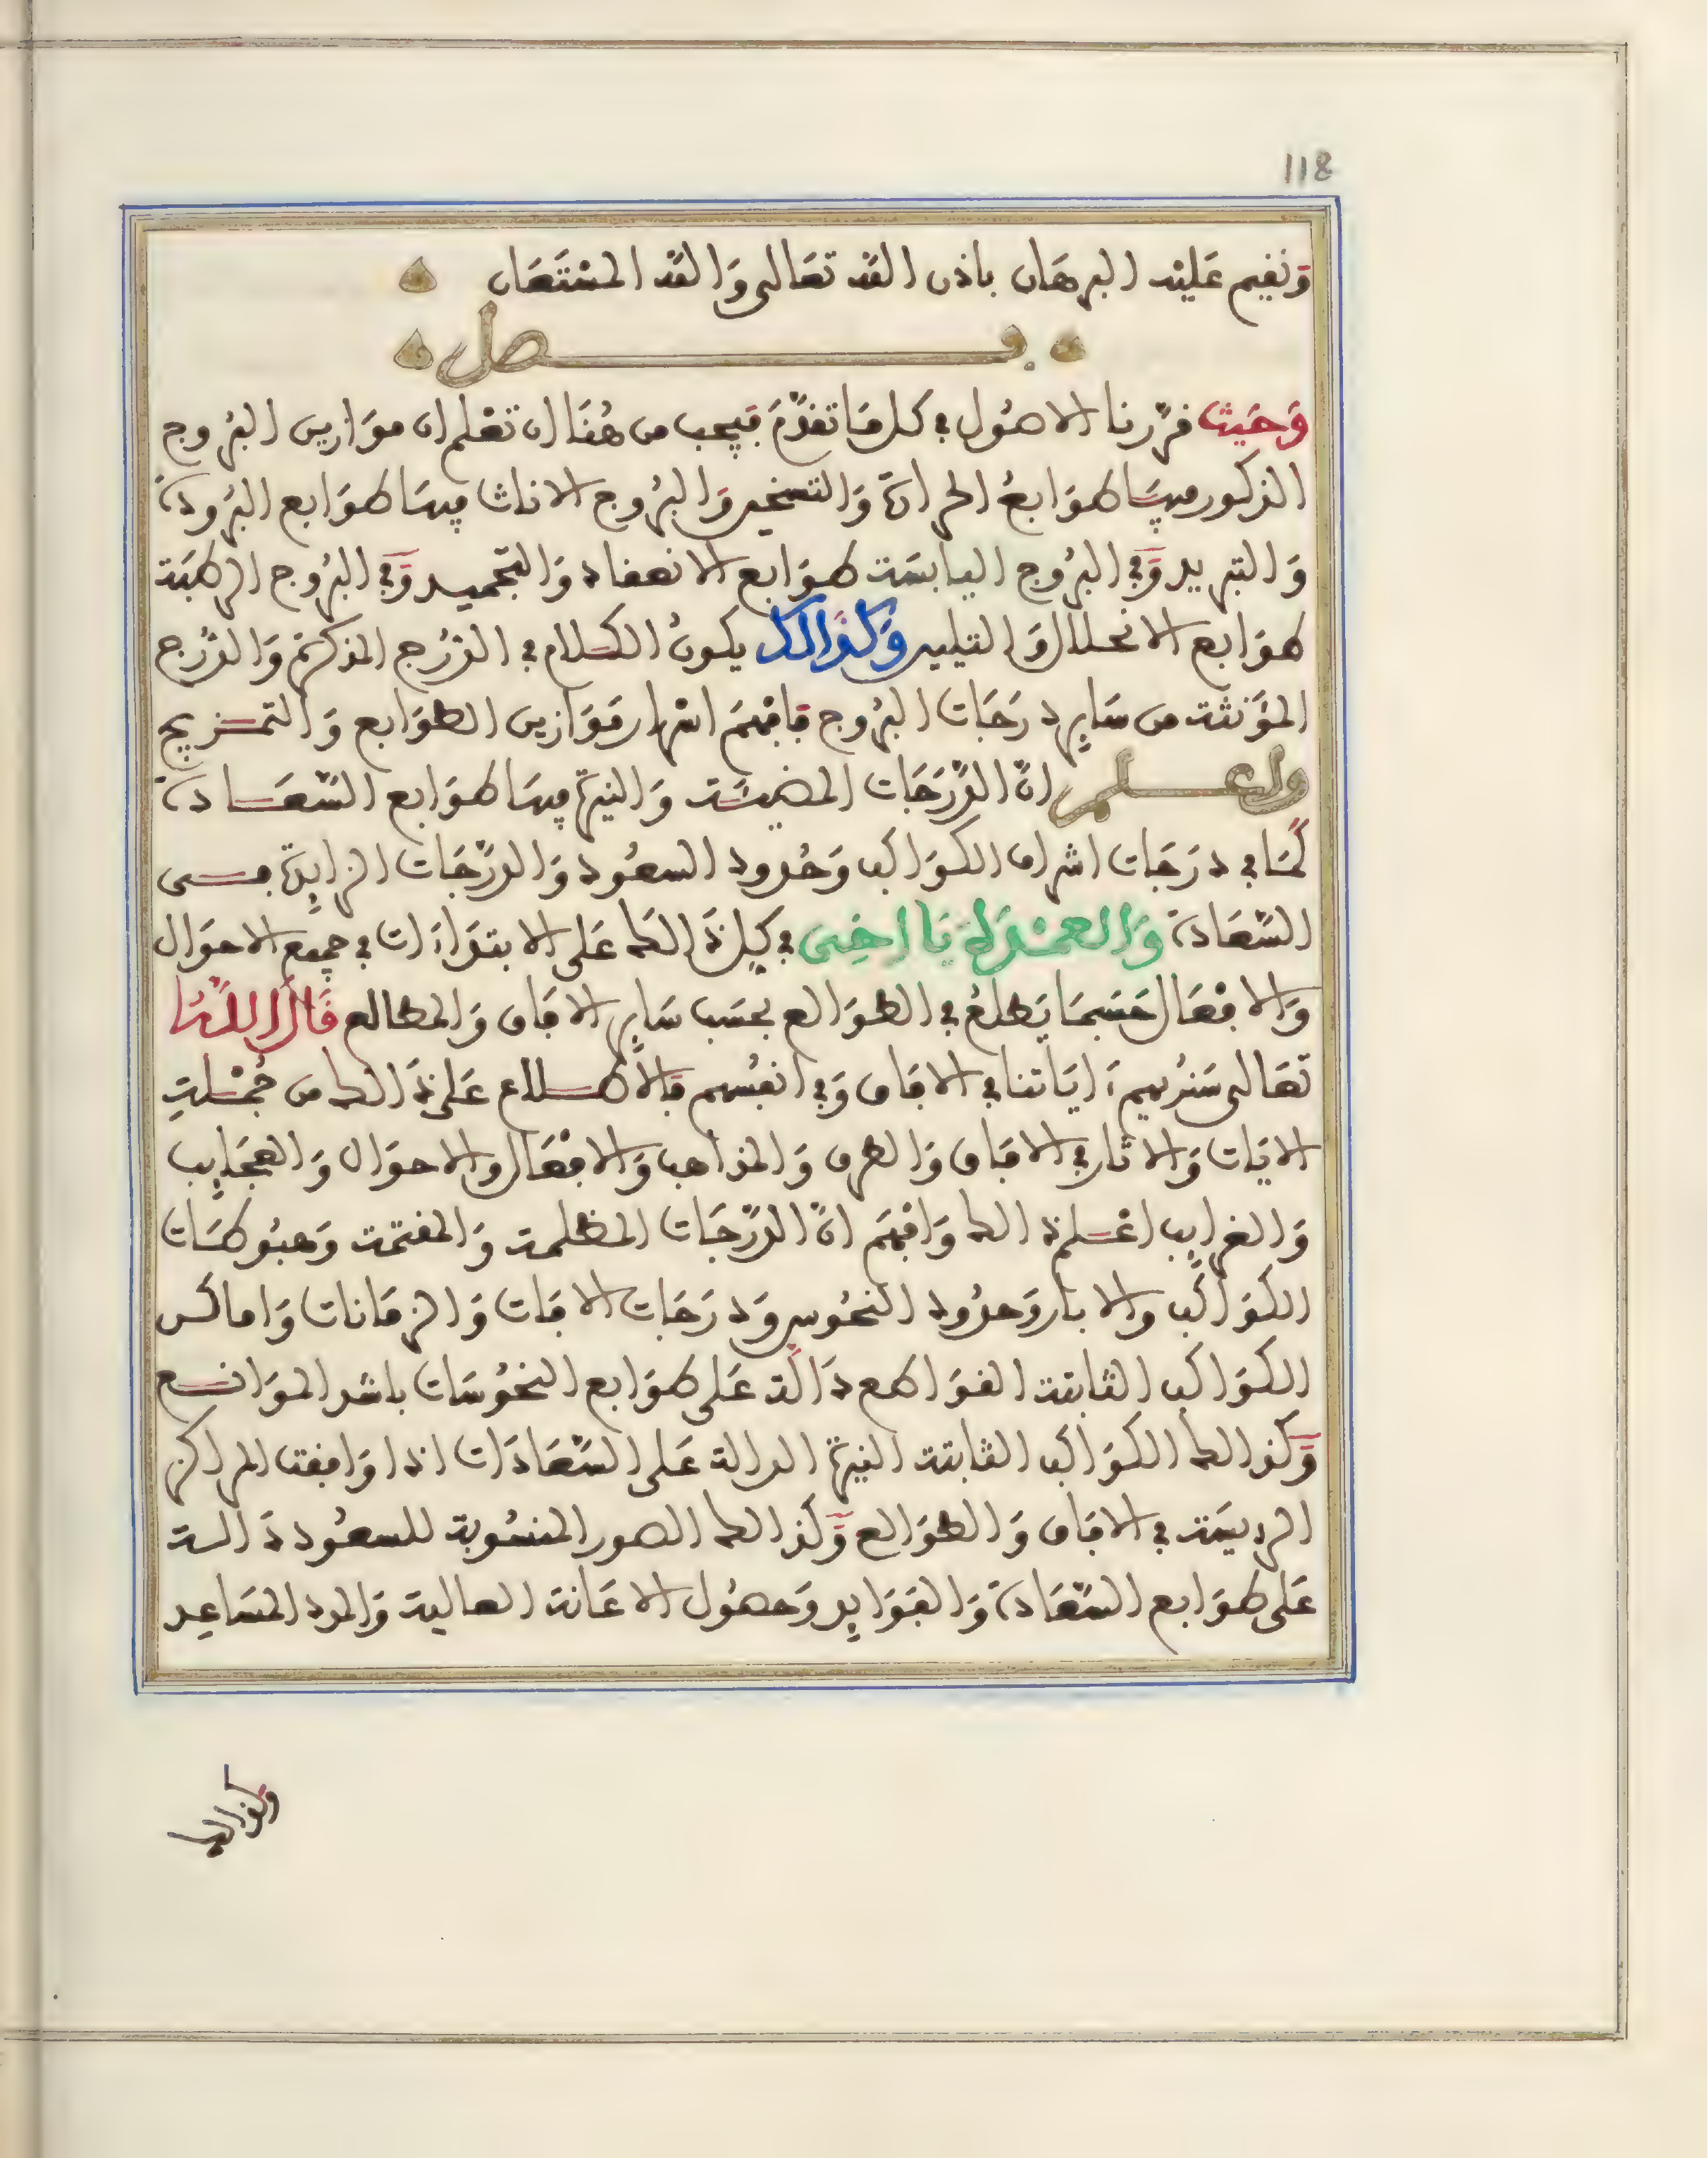 118
وَنفيم عَليْه البرهَان باذن اللَّه تعَالى وَاللَّه المسْتَعَان
فصل
وَحَيث قرّرنا الاصُول في كل مَا تقدَّمَ فيجب من هُنَا ان تعْلم ان موَازين البُروج
الذكور فيهَا طوَابعُ الحرارة وَالتسخين وَالبُروج الاناث فيهَا طوَابع البُرودة
وَالتبريد وَفي البرُوج اليابسَة طوَابع الانعقاد وَالتجميد وَفي البرُوج الرطبَة
طوَابع الانحلال وَالتليين وَكذَالك يكونُ الكلام في الدّرج المذكرة وَالدّرج
المؤنثة من سَاير درَجَات البرُوج فافهَم اسْرار مَوَازين الطوَابع وَالتمزيج
واعلم انّ الدّرَجَات المضيئَة وَالنيرة فيهَا طوَابع السّعَادة
كمَا في درَجَات اشراف الكوَاكب وَحُدود السعُود وَالدرّجَات الزايدة في
السّعَادة وَالعمْدَة يَا اخِى في كل ذَالك عَلى الابتدَاءَات في جميع الاحوَال
وَالافعَال حَسَبمَا يَطلعُ في الطوَالع بحسَب سَاير الافَاق وَالمطالع قَالَ اللَّه
تعَالى سَنُريهم ءَايَاتنا في الافَاق وَفي انفُسهم فالاطلاع عَلى ذَالك من جُمْلةِ
الايَات وَالاثار في الافَاق وَالطرق وَالمذاهب وَالافعَال والاحوَال وَالعجَايب
وَالغرايب اعْلم ذالك وَافهَم انّ الدّرّجَات المظلمة وَالمقتمة وَهبُوطَات
الكوَاكب والابار وَحدُود النحُوس وَدرَجَات الافَات وَالزمَانات وَاماكن
الكوَاكب الثابتة القوَاطع دَالّة عَلى طوَابع النحُوسَات باشر الموَانع
وَكذالك الكوَاكب الثابتة النيرة الدالة عَلى السّعَادَات اذا وَافقت المراكز
الرييسَة في الافَاق وَالطوَالع وَكذالك الصور المنسُوبة للسعُود دَالة
عَلى طوَابع السّعَادة وَالفوَايد وَحصُول الاعَانة العالية وَالمدد المسَاعِد
وكذالك